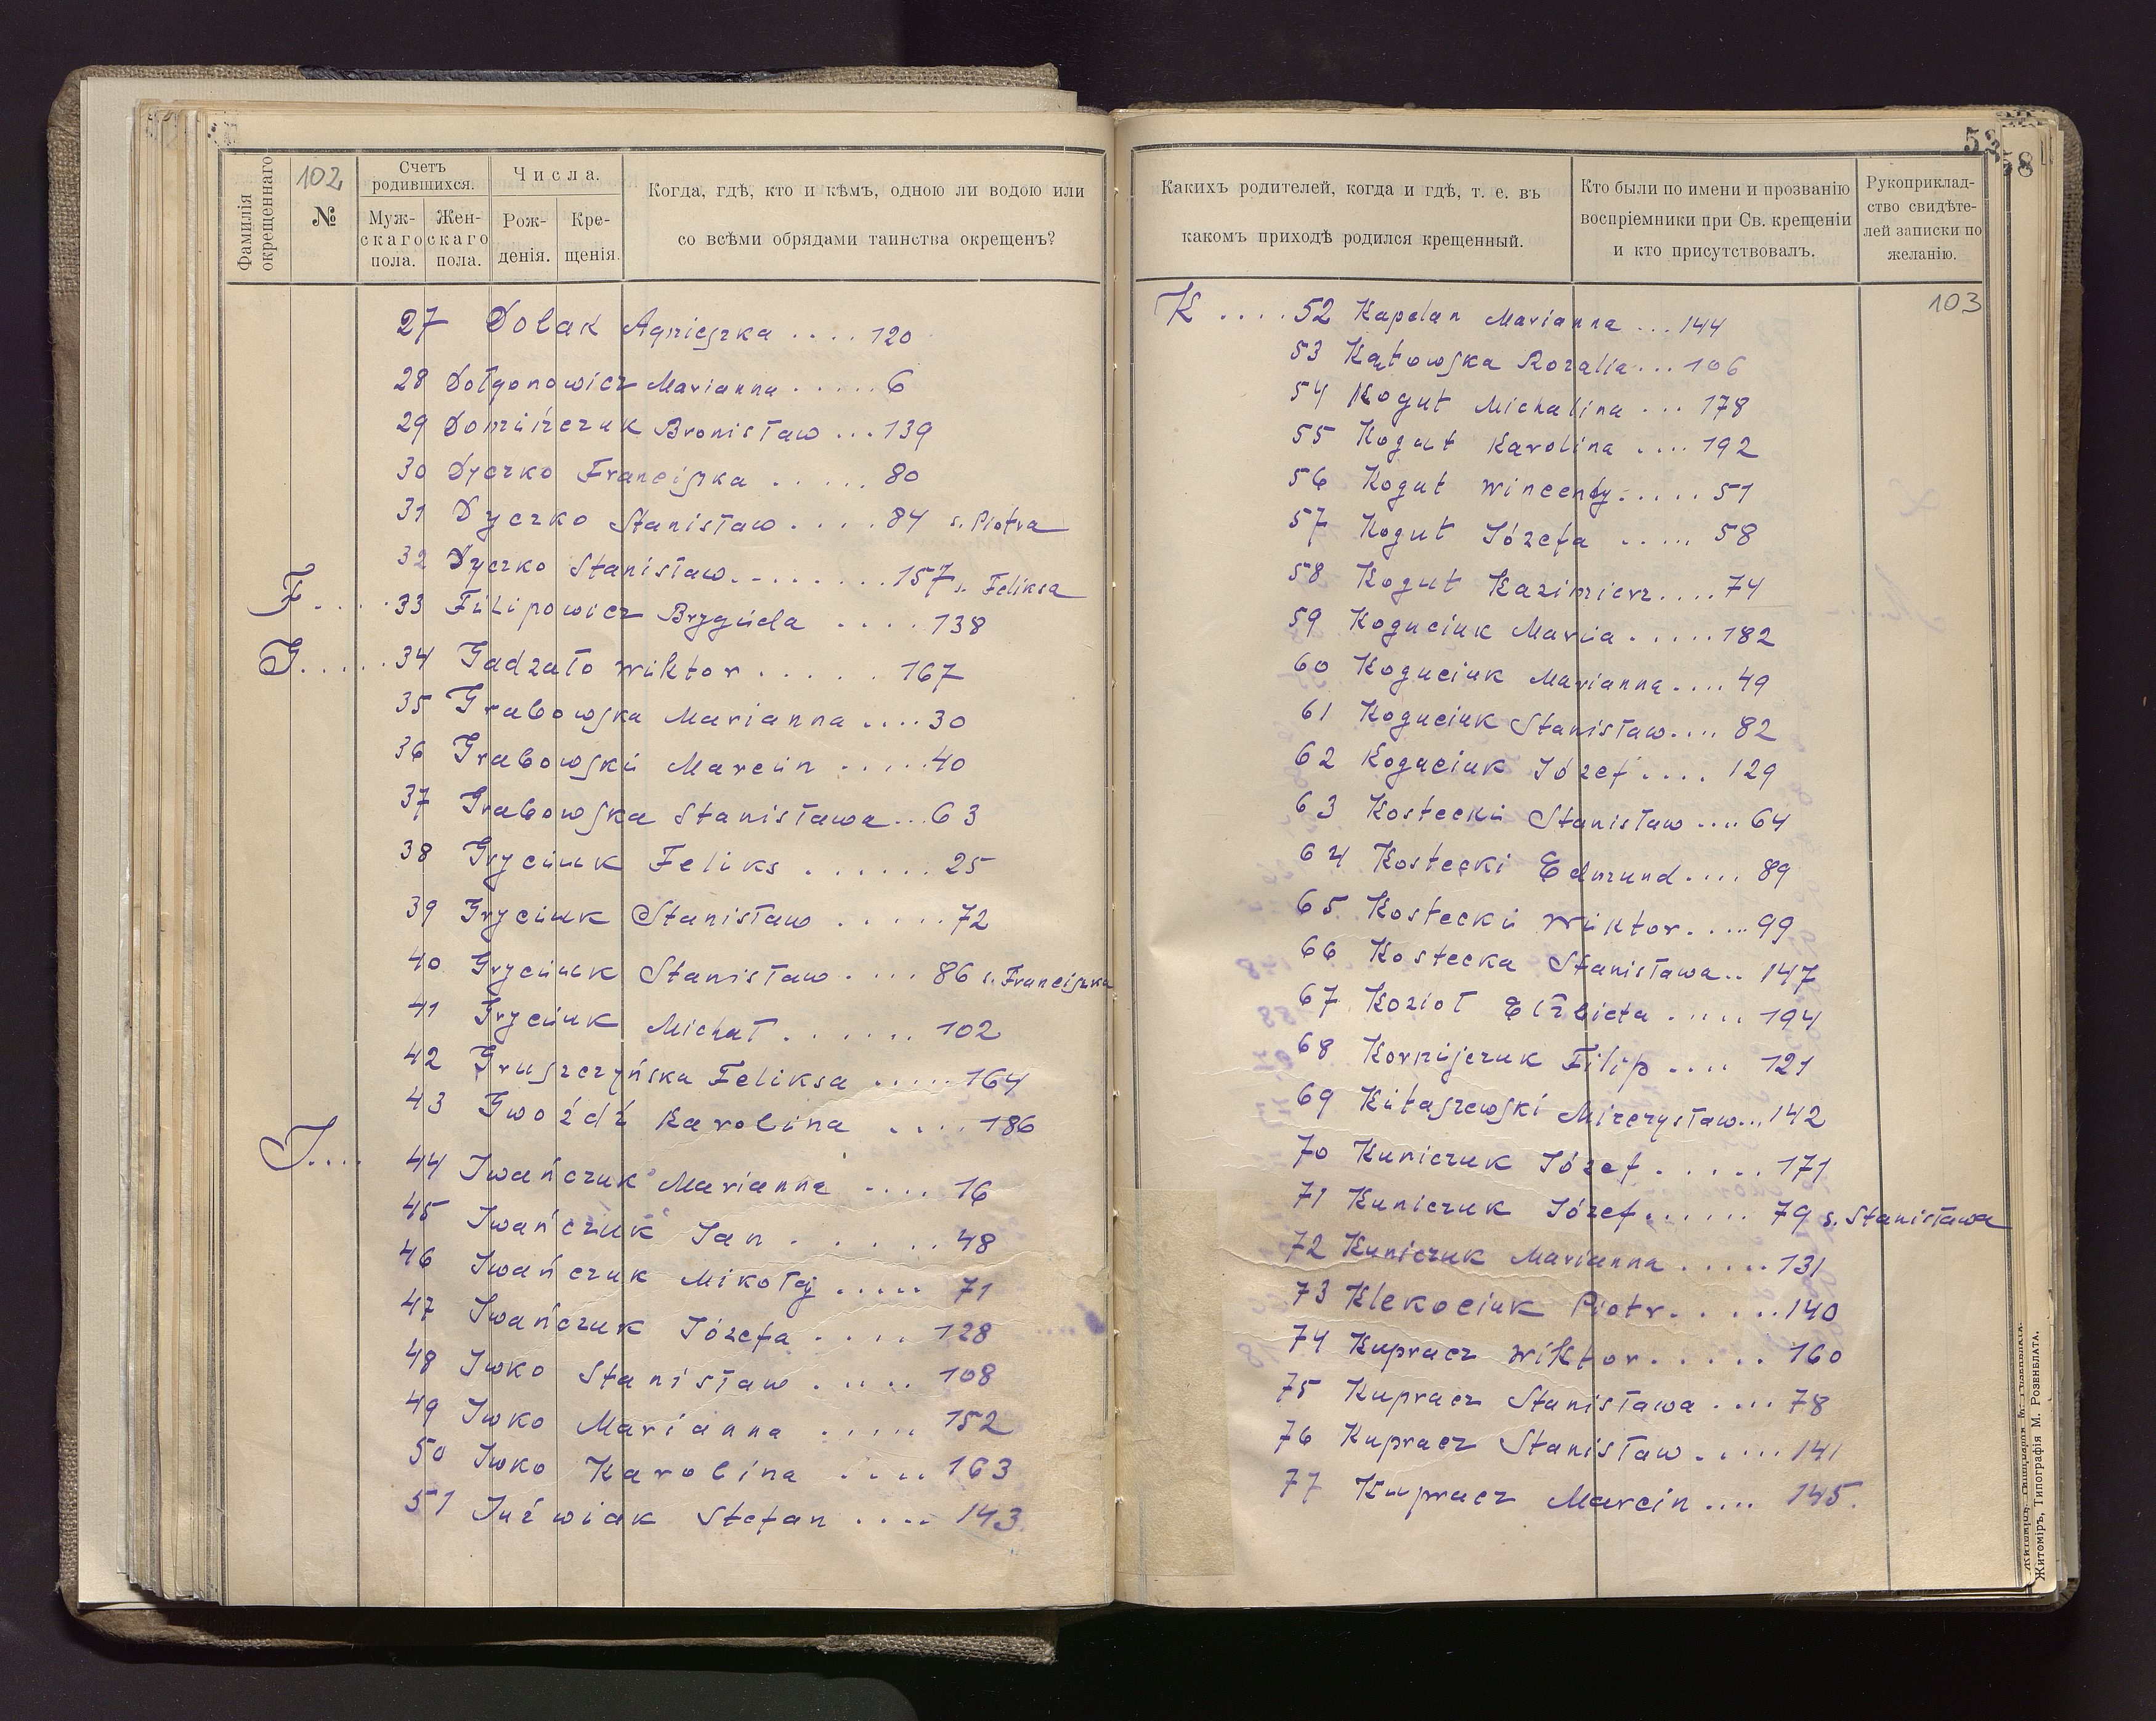 Фамилія окрещеннаго
102
№
Счетъ родившихся.
Муж-скаго пола.
Жен-скаго пола.
Числа.
Рож-денія.
Кре-щенія.
Когда, гдѣ, кто и кѣмъ, одною ли водою или
со всѣми обрядами таинства окрещенъ?
27 Dolak Agnieszka .... 120
28 Dołgonowicz Marianna ..... 6
29 Domińczuk Bronisław ... 139
30 Dyczko Franciszka ..... 80
31 Dyczko Stanisław .... 84 s. Piotra
32 Dyczko Stanisław ........ 157 s. Feliksa
F .... 33 Filipowicz Brygida .... 138
G ..... 34 Gadzało Wiktor ..... 167
35 Grabowska Marianna .... 30
36 Grabowski Marcin ..... 40
37 Grabowska Stanisława ... 63
38 Gryciuk Feliks ...... 25
39 Gryciuk Stanisław ..... 72
40 Gryciuk Stanisław .... 86 s. Franciszka
41 Gryciuk Michał ...... 102
42 Gruszczyńska Feliksa ..... 164
43 Gwoźdź Karolina .... 186
I .... 44 Iwańczuk Marianna .... 16
45 Iwańczuk Jan ...... 48
46 Iwańczuk Mikołaj ..... 71
47 Iwańczuk Józefa .... 128
48 Iwko Stanisław ..... 108
49 Iwko Marianna ..... 152
50 Iwko Karolina .... 163
51 Juźwiak Stefan .... 143
53
58
Какихъ родителей, когда и гдѣ, т. е. въ
какомъ приходѣ родился крещенный.
Кто были по имени и прозванію
воспріемники при Св. крещеніи
и кто присутствовалъ.
Рукоприклад-
ство свидѣте-
лей записки по
желанію.
103
K .... 52 Kapelan Marianna ... 144
53 Kątowska Rozalia ... 106
54 Kogut Michalina ... 178
55 Kogut Karolina .... 192
56 Kogut Wincenty ..... 51
57 Kogut Józefa ..... 58
58 Kogut Kazimierz .... 74
59 Koguciuk Maria ..... 182
60 Koguciuk Marianna .... 49
61 Koguciuk Stanisław .... 82
62 Koguciuk Józef .... 129
63 Kostecki Stanisław .... 64
64 Kostecki Edmund .... 89
65 Kostecki Wiktor ..... 99
66 Kostecka Stanisława .. 147
67 Kozioł Elżbieta ..... 194
68 Kornijczuk Filip .... 121
69 Kitaszewski Mieczysław ... 142
70 Kuniczuk Józef ..... 171
71 Kuniczuk Józef ...... 79 s. Stanisława
72 Kuniczuk Marianna ..... 131
73 Klekociuk Piotr ..... 140
74 Kupracz Wiktor ..... 160
75 Kupracz Stanisława .... 78
76 Kupracz Stanisław ..... 141
77 Kupracz Marcin .... 145.
Житоміръ, Типографія М. Розенблата.